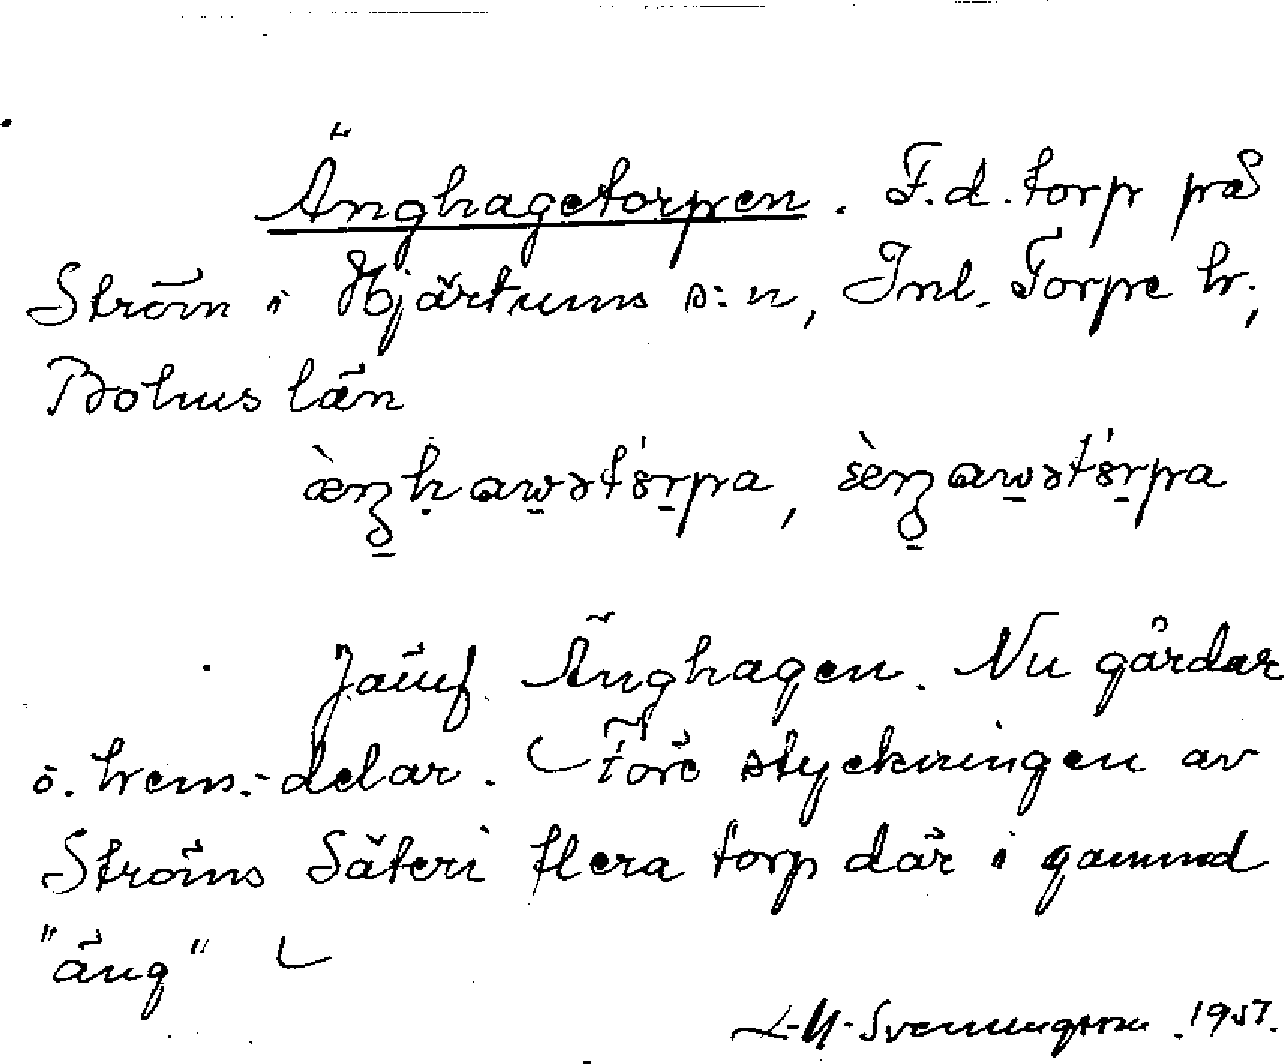 Änghagetorpen. F.d. torp på
Ström i Hjärtums s:n, Inl. Torpe hr.,
Bohus län
Jämf. Änghagen. Nu gårdar
o. hem.-delar. Före styckningen av
Ströms Säteri flera torp där i gammal
"äng"
1957.